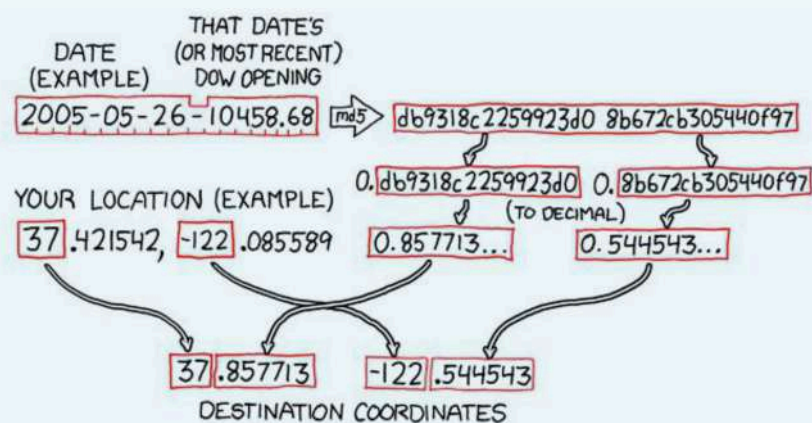 DATE
(EXAMPLE)
THAT DATE'S
(OR MOST RECENT)
DOW OPENING
2005-05-26-10458.68
md5
db9318c2259923d0 8b672cb305440f97
0.db9318c2259923d0
0.8b672cb305440f97
(TO DECIMAL)
YOUR LOCATION (EXAMPLE)
37.421542, -122.085589
0.857713...
0.544543...
37.857713
-122.544543
DESTINATION COORDINATES